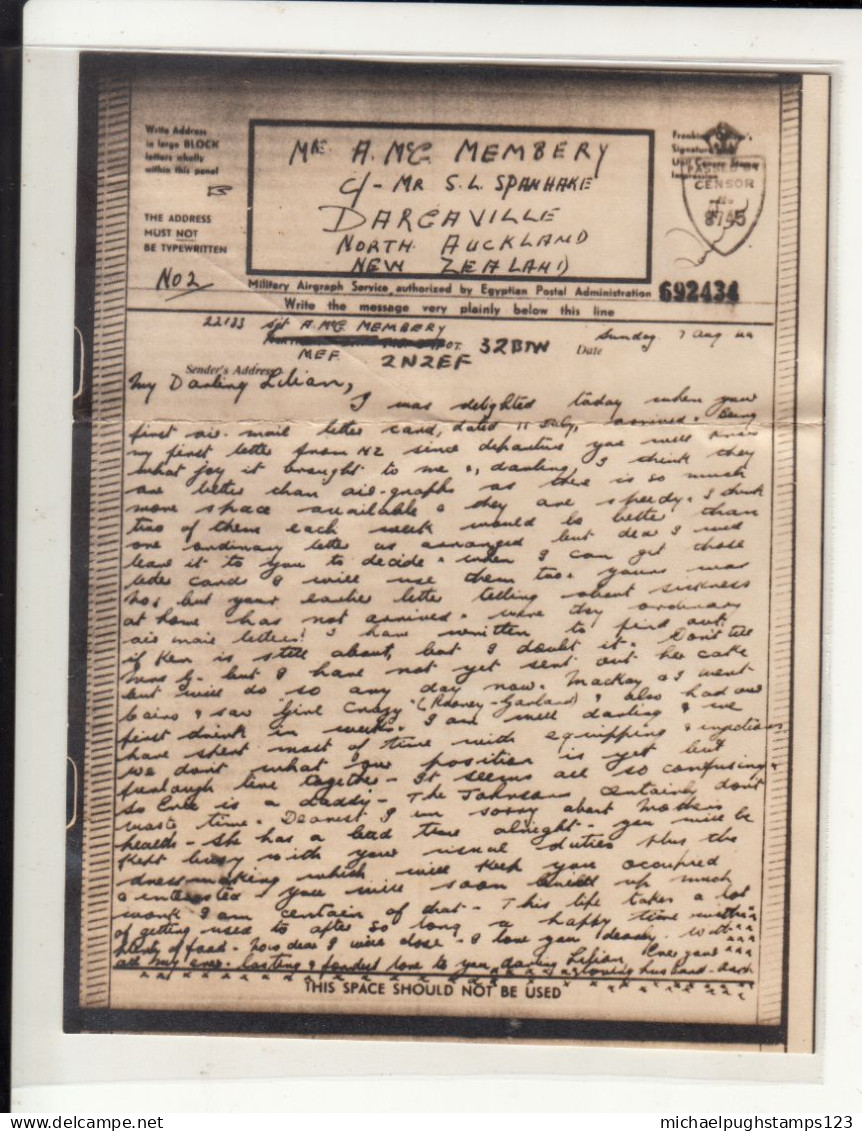 Write Address
in large BLOCK
letters wholly
within this panel
THE ADDRESS
MUST NOT
BE TYPEWRITTEN
No 2
Mrs A. McC. MEMBERY
C/- MR S. L. SPANHAKE
DARGAVILLE
NORTH AUCKLAND
NEW ZEALAND
PASSED BY
CENSOR
8745
Military Airgraph Service authorized by Egyptian Postal Administration
692434
Write the message very plainly below this line
22133 Sgt A. McC. MEMBERY
32 BTN
MEF 2NZEF
Sender's Address
Sunday 7 Aug 44
Date
My Darling Lilian,
I was delighted today when your
first air-mail letter card, dated 11 July, arrived. Being
my first letter from NZ since departure you will know
what joy it brought to me., darling, I think they
are better than air-graphs as there is so much
more space available & they are speedy. I think
two of them each week would be better than
one ordinary letter as arranged but dear I will
leave it to you to decide. When I can get those
letter cards I will use them too. Yours was
No, but your earlier letter telling about sickness
at home has not arrived. Were they ordinary
air mail letters? I have written to find out
if Ken is still about, but I doubt it. Don't tell
but I have not yet sent out her cake
but will do so any day now. Mackay & I went
Cairo & saw Girl Crazy (Rooney-Garland) & also had our
first drink in weeks. I am well darling & we
have spent most of time with equipping & injections
We don't what our position is yet but
furlough time together - It seems all so confusing.
So is a daddy - The Johnsons certainly don't
waste time. Dearest I am sorry about Mothers
health - She has a bad time alright - you will be
kept busy with your usual duties plus the
dressmaking which will keep you occupied
& interested. you will soon build up much
work I am certain of that - This life takes a lot
of getting used to after so long a happy time
plenty of food - dear I were close - I love you dearly - With
all my ever-lasting & fondest love to you darling Lilian, Ever your
loving husband
THIS SPACE SHOULD NOT BE USED
michaelpughstamps123